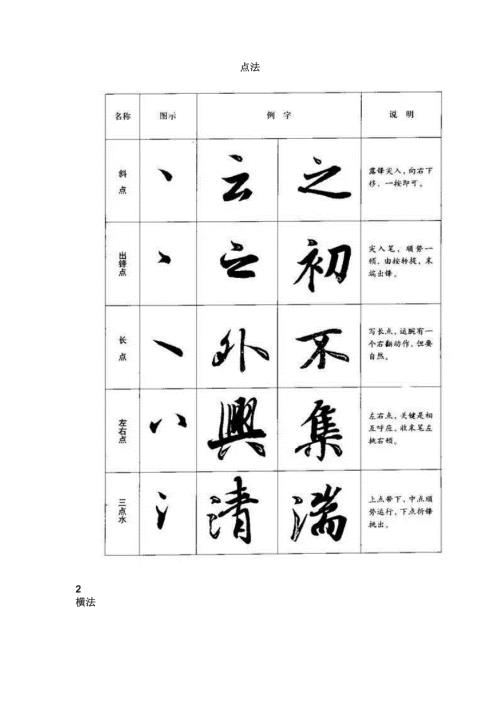 点法
名称 图示 例 字 说 明
斜点 云 之 露锋尖入，向右下
移，一按即可。
出锋点 之 初 尖入笔，顺势一
顿，由按转提，末
端出锋。
长点 外 不 写长点，运腕有一
个右翻动作，但要
自然。
左右点 興 集 左右点，关键是相
互呼应，收末笔左
挑右顿。
三点水 清 湍 上点带下，中点顺
势运行，下点折锋
挑出。
2
横法